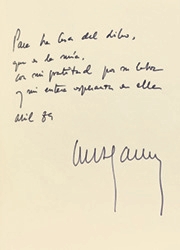 Para la Casa del libro,
que es la mía,
con mi gratitud por su labor
y mi entera esperanza en ella
abril 89